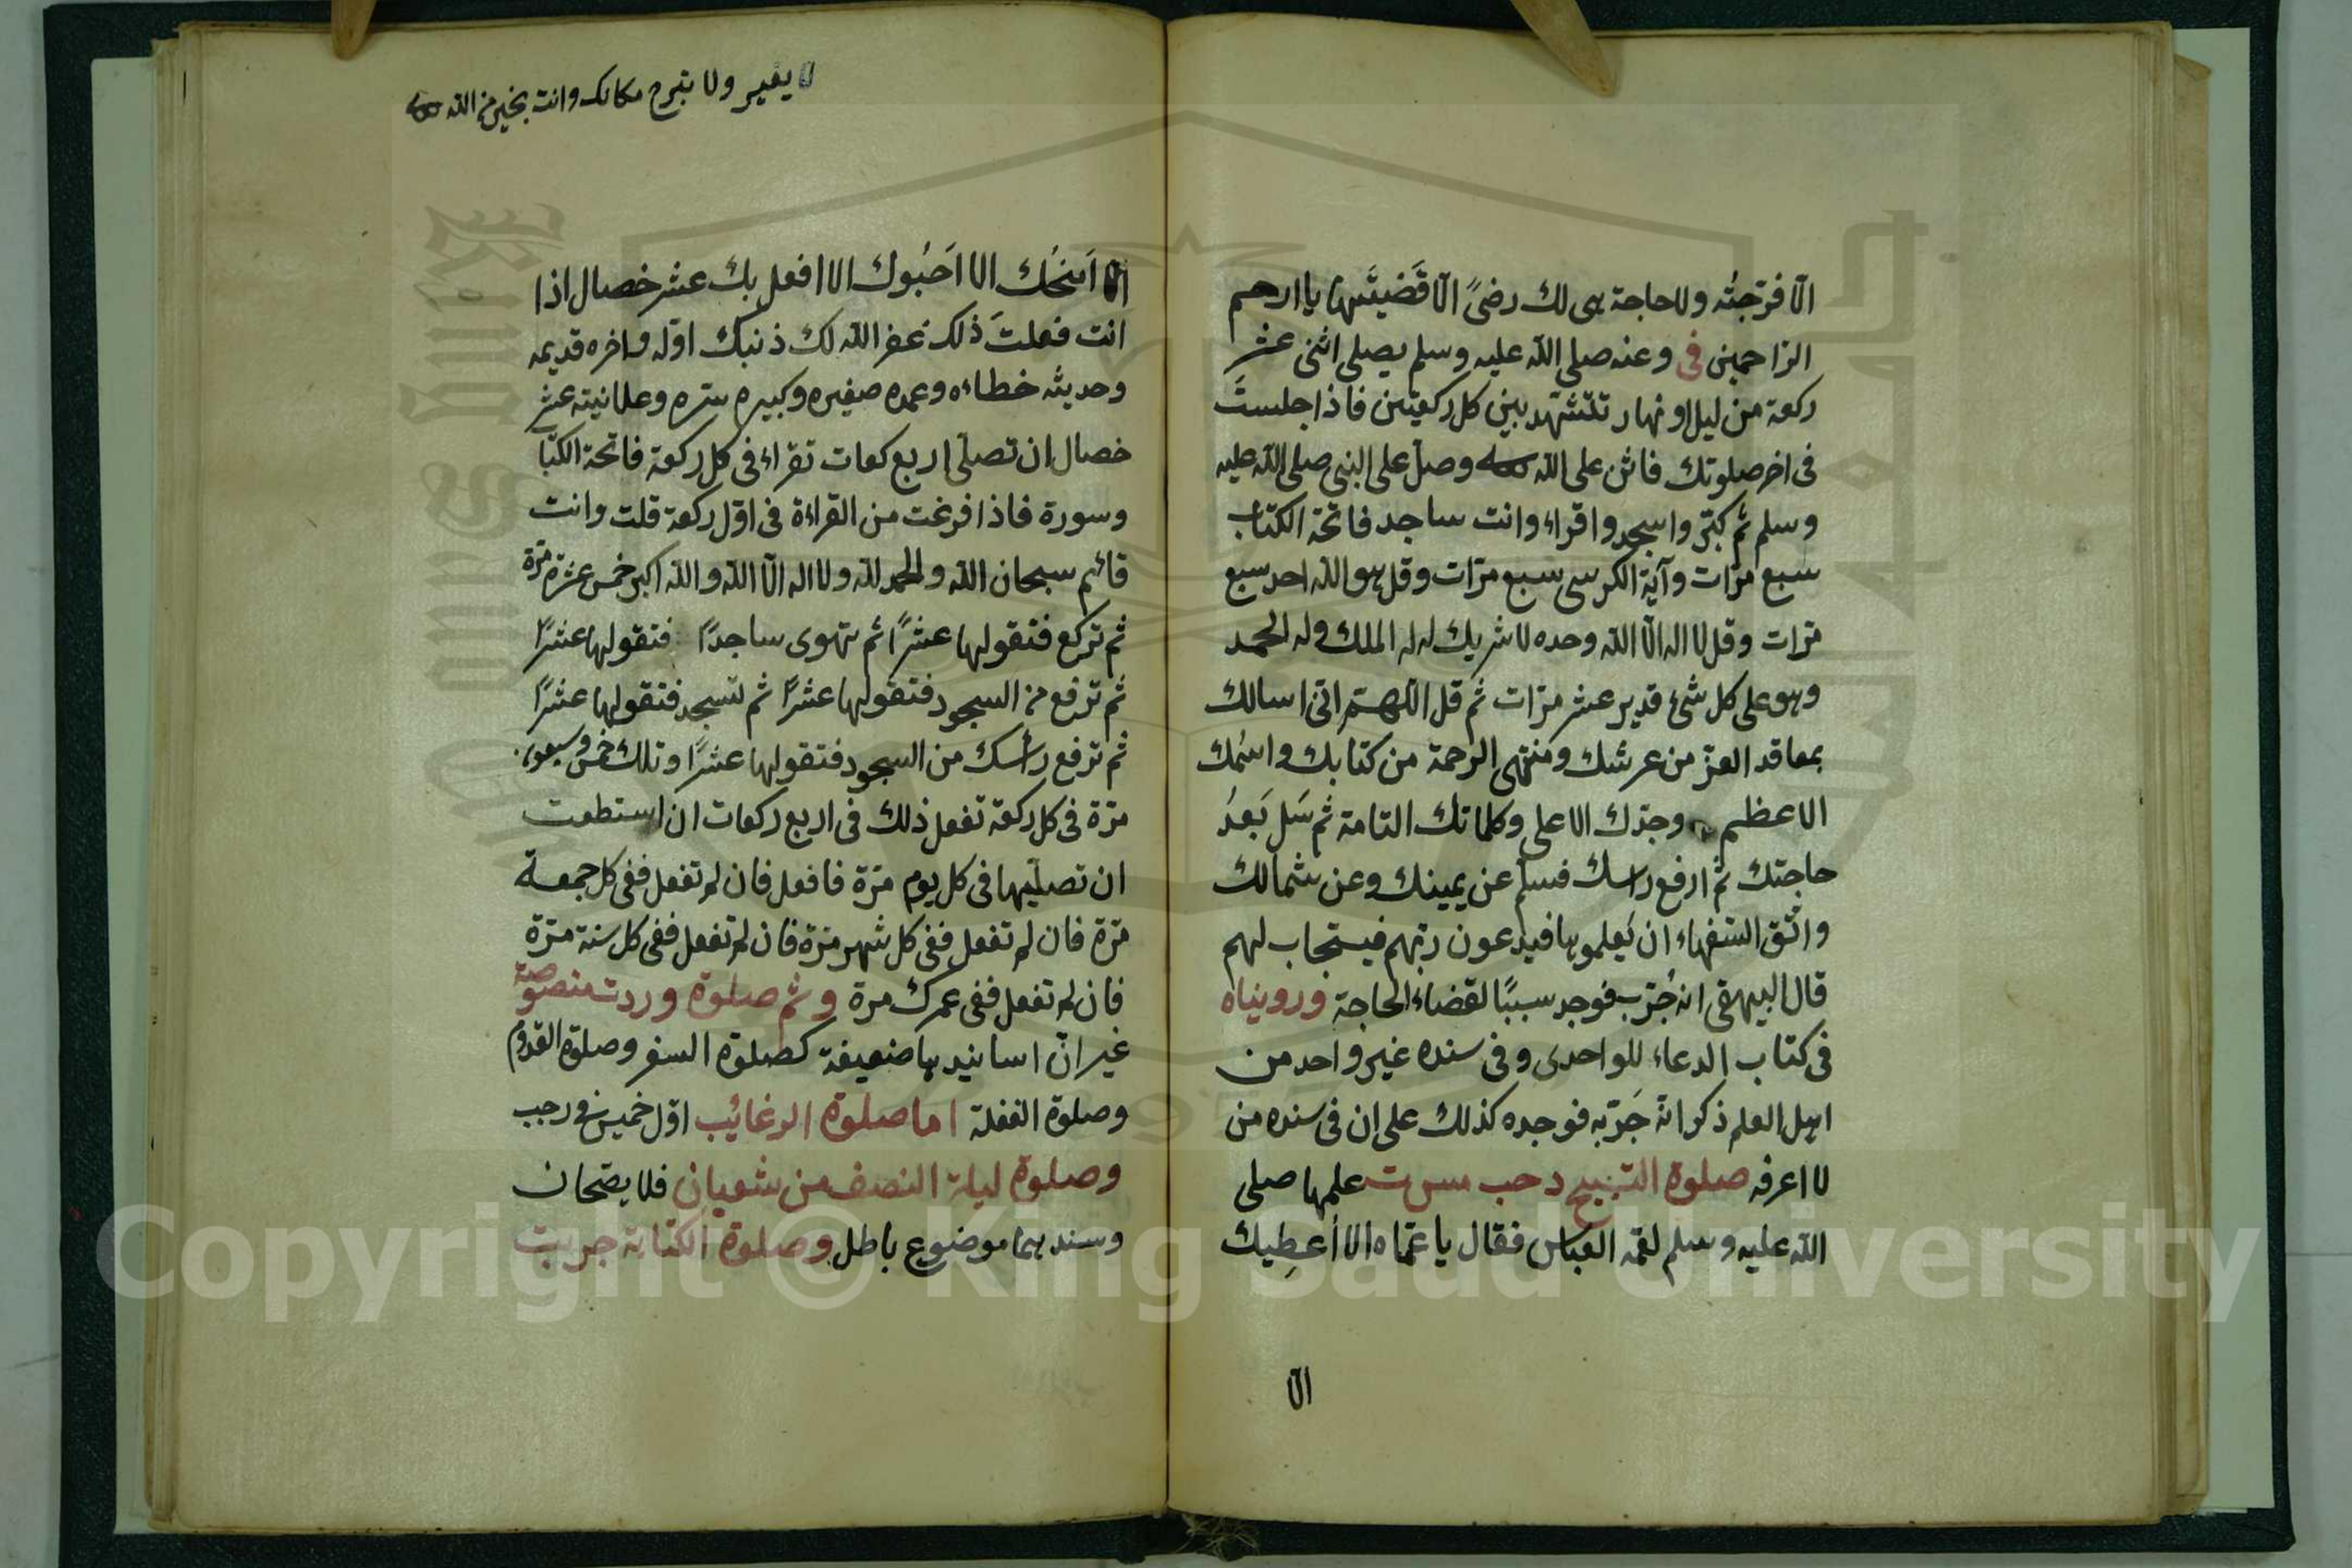 الّا فرّجتُه ولا حاجة هى لك رضىً الّا قَضَيتَها يا ارحم
الرّاحمين فى وعنه صلى اللّه عليه وسلم يصلى اثنى عشر
ركعة من ليل او نهار تتشهّد بين كل ركعتين فاذا جلستَ
فى اخر صلوتك فاثن على اللّه وصلّ على النبى صلى اللّه عليه
وسلم ثم كبّر واسجد واقراء وانت ساجد فاتحة الكتاب
سبع مرّات وآية الكرسى سبع مرّات وقل هو اللّه احد سبع
مرّات وقل لا اله الّا اللّه وحده لا شريك له له الملك وله الحمد
وهو على كل شئ قدير عشر مرّات ثم قل اللّهمّ انّى اسالك
بمعاقد العزّ من عرشك ومنتهى الرحمة من كتابك واسمك
الاعظم وجدّك الاعلى وكلماتك التامة ثم سَل بَعدُ
حاجتك ثم ارفع راسك فسلّم عن يمينك وعن شمالك
واتّق السّفهاء ان يَعلموها فيدعون ربّهم فيستجاب لهم
قال البيهقى انه جُرّب فوجد سببًا لقضاء الحاجة ورويناه
فى كتاب الدعاء للواحدى وفى سنده غير واحد من
اهل العلم ذكر انّه جَرّبه فوجده كذلك على ان فى سنده من
لا اعرفه صلوة التسبيح د حب مس ت علمها صلى
اللّه عليه وسلم لعمّه العباس فقال يا عمّاه الا أعطِيك
الا
لا يغير ولا تبرح مكانك وانت بخير من اللّه
الا اَمنحُك الا اَحبُوك الا افعل بك عشر خصال اذا
انت فعلتَ ذلك غفر اللّه لك ذنبك اوّله واخره قديمه
وحديثه خطاءه وعمده صغيره وكبيره سرّه وعلانيته عشر
خصال ان تصلّى اربع ركعات تقراء فى كل ركعة فاتحة الكتاب
وسورة فاذا فرغت من القراءة فى اوّل ركعة قلت وانت
قائم سبحان اللّه والحمد للّه ولا اله الّا اللّه واللّه اكبر خمس عشرة مرّة
ثم تركع فتقولها عشرًا ثم تهوى ساجدًا فتقولها عشرًا
ثم ترفع من السجود فتقولها عشرًا ثم تسجد فتقولها عشرًا
ثم ترفع رأسك من السجود فتقولها عشرًا وتلك خمس وسبعون
مرّة فى كل ركعة تفعل ذلك فى اربع ركعات ان استطعت
ان تصلّيها فى كل يوم مرّة فافعل فان لم تفعل ففى كل جمعة
مرّة فان لم تفعل ففى كل شهر مرّة فان لم تفعل ففى كل سنة مرّة
فان لم تفعل ففى عمرك مرة وثم صلوة وردت منصوصة
غير انّ اسانيدها ضعيفة كصلوة السفر وصلوة القدوم
وصلوة الغفلة اما صلوة الرغائب اوّل خميس فى رجب
وصلوة ليلة النصف من شعبان فلا يصحان
وسندهما موضوع باطل وصلوة الكفاية جربت
Copyright © King Saud University